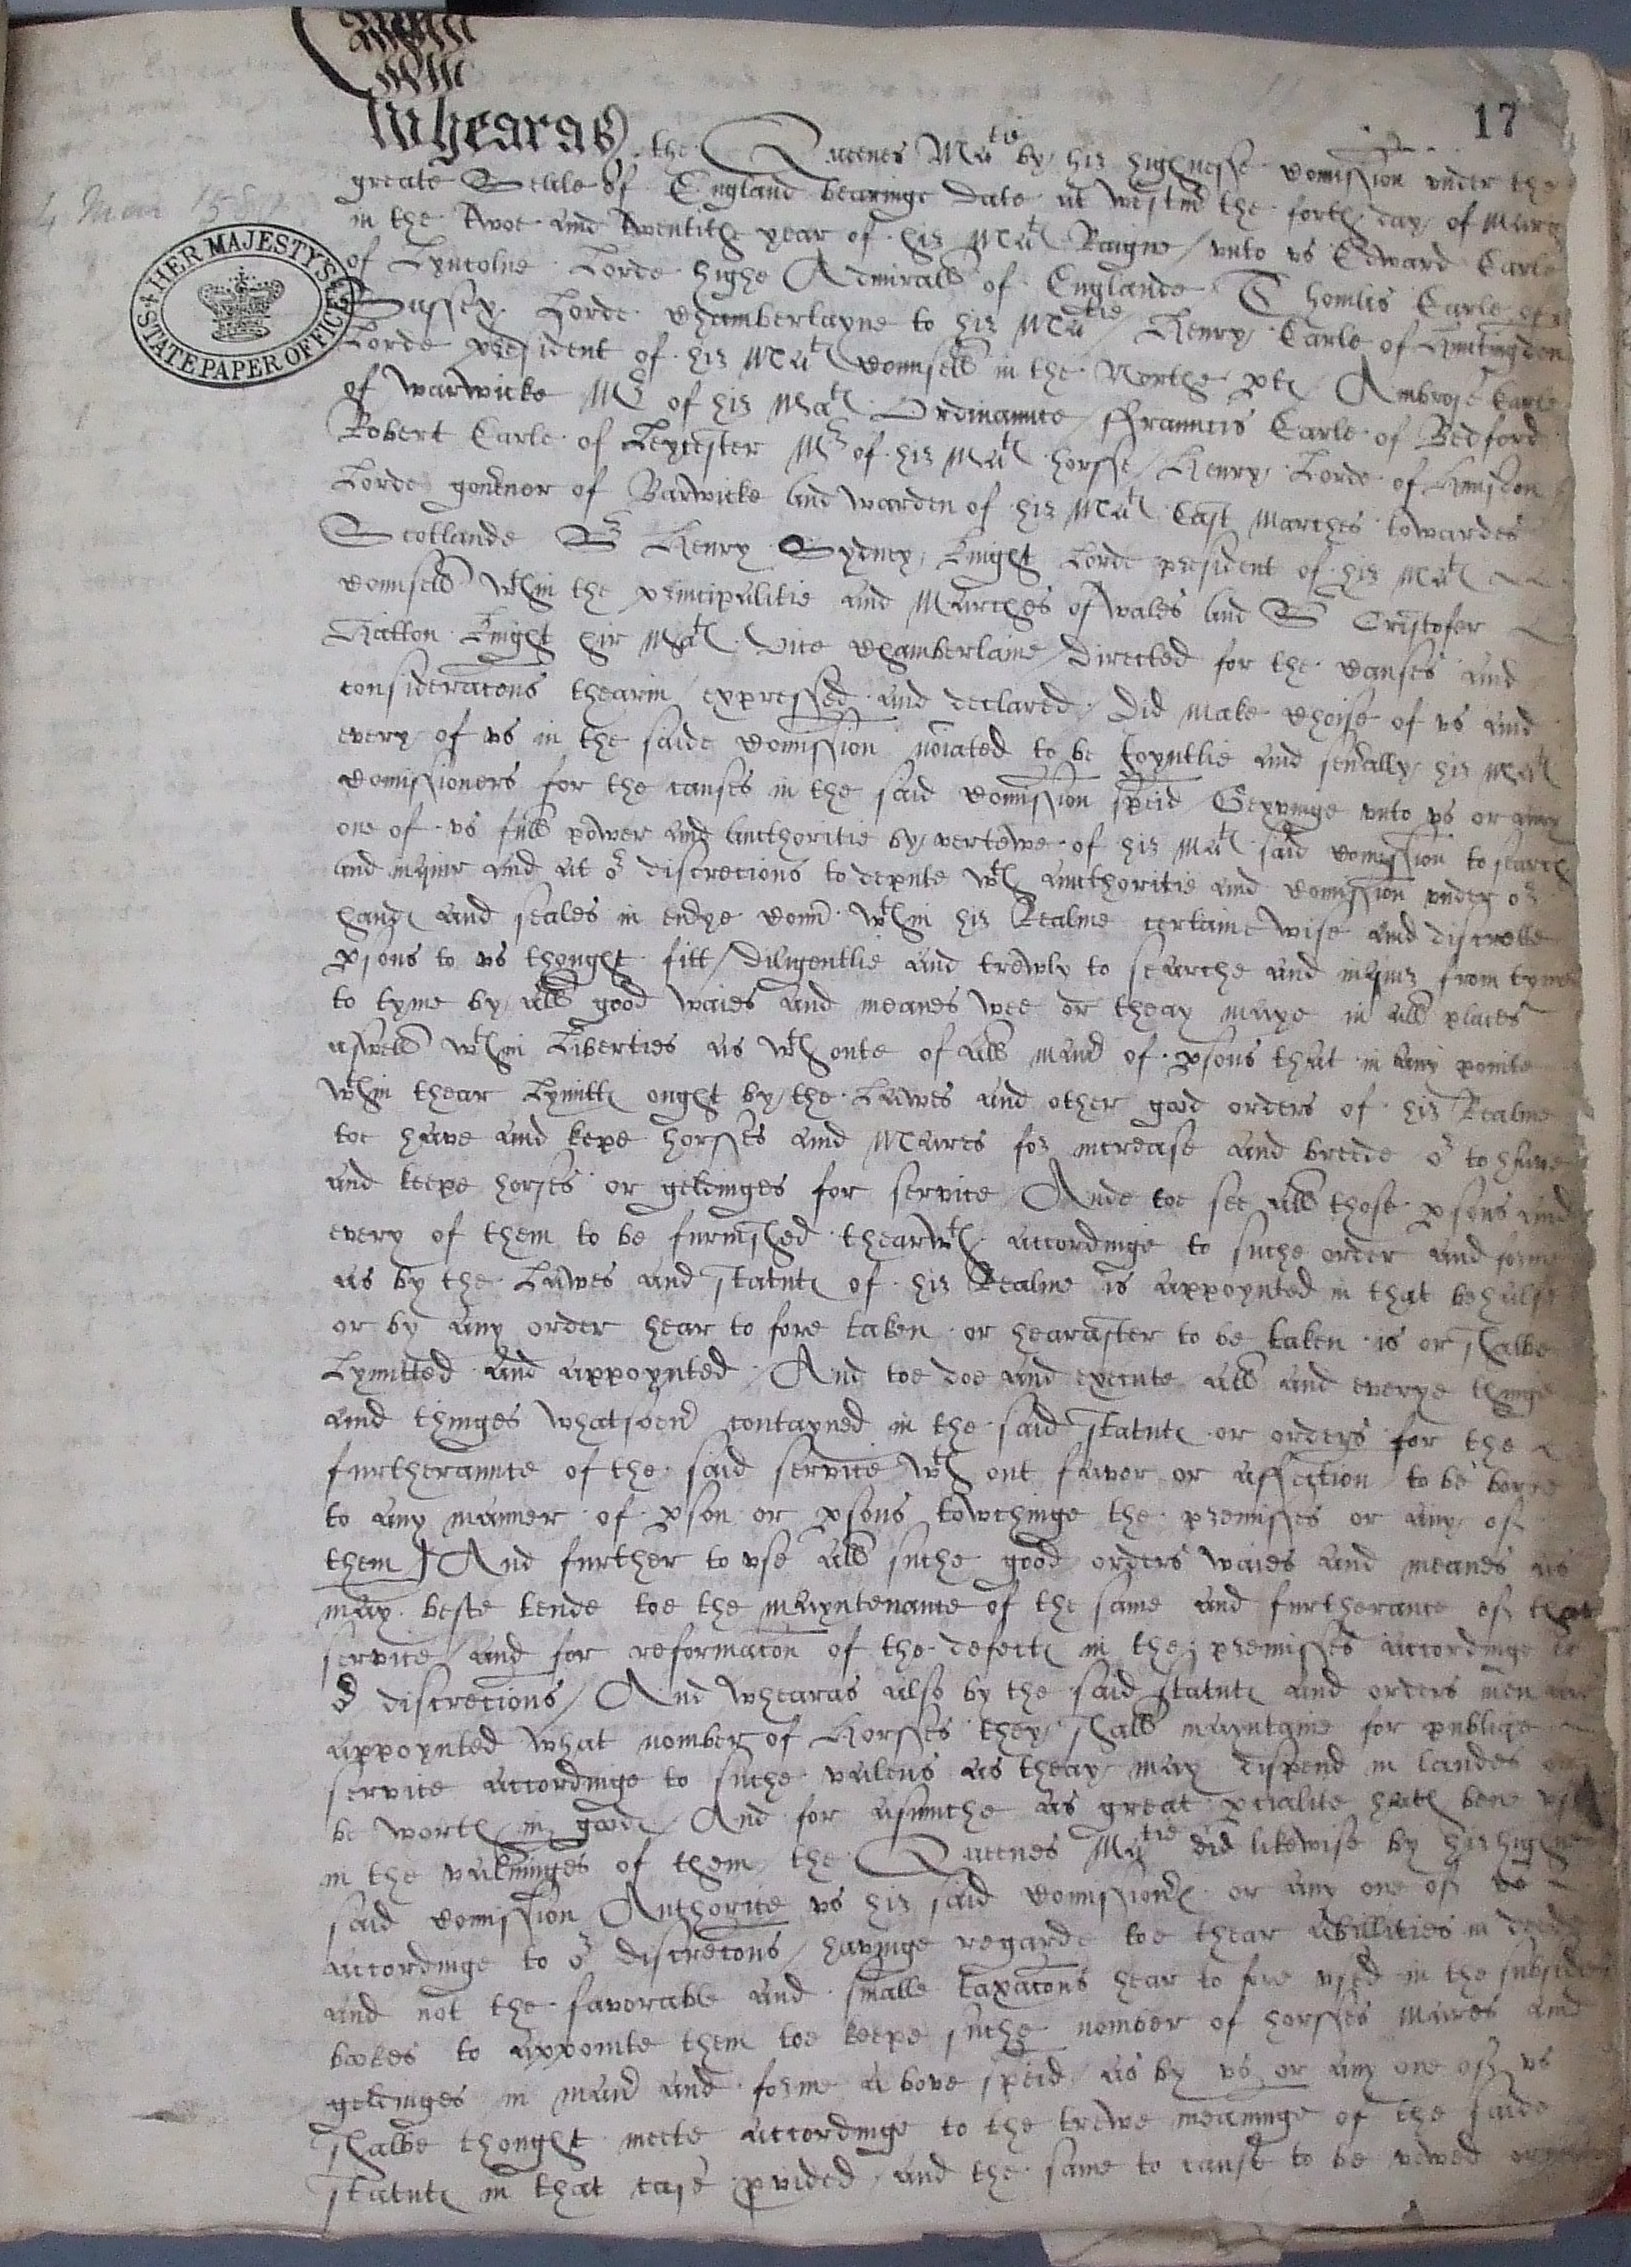 17
Whearas the Queenes Matie by hir highnesse Comission under the
4 Mar 158
greate Seale of England bearinge date at westm the forth day of Marche
in the twoe and twentith year of hir Mats Raigne / unto us Edward Earle
HER MAJESTY'S STATE PAPER OFFICE
of Lyncolne Lorde highe Admirall of Englande Thomas Earle of
Sussex Lorde Chamberlayne to hir Matie / Henry Earle of Huntingdon
Lorde president of hir Mats Counsell in the Northe ptes / Ambrose Earle
of warwicke Mr of hir Mats Ordinaunce / ffrauncis Earle of Bedford
Robert Earle of Leycester Mr of hir Mats horsse / Henry Lorde of Hunsdon
Lorde governor of Barwicke and warden of hir Mats East Marches towardes
Scotlande Sr Henry Sydney knight Lorde president of hir Mats
Counsell wthin the principalitie and Marches of wales and Sr Cristofer
Hatton knight hir Mats Vice Chamberlaine / directed for the causes and
consideracons thearin expressed and declared / Did make Choise of us and
every of us in the saide Comission noiated to be Joyntlie and severally hir Mats
Comissioners for the causes in the said Comission specid / Gevinge unto us or any
one of us full power and aucthoritie by vertewe of hir Mats said Comission to search
and inquir and at or discrecions to depute wth aucthoritie and Comission under or
handes and seales in everye Count wthin hir Realme certaine wise and discrette
psons to us thought fitt / diligentlie and trewly to searche and inquir from tyme
to tyme by all good waies and meanes wee or theay maye in all places
aswell wthin Liberties as wthoute of all maner of psons that in any pointe
wthin thear Lymittes ought by the Lawes and other good orders of hir Realme
toe have and kepe horsses and Mares for increase and breede or to have
and keepe horses or geldinges for service / Ande toe see all those psons and
every of them to be furnished thearwth accordinge to suche order and forme
as by the Lawes and statutes of hir Realme is appoynted in that behalfe
or by any order hear to fore taken or hearafter to be taken is or shalbe
Lymitted and appoynted / And toe doe and execute all and everye thinge
and thinges whatsoever contayned in the said statutes or orders for the
furtheraunce of the said service wth out favor or affection to be borne
to any manner of pson or psons towchinge the premisses or any of
them / And further to use all suche good orders waies and meanes as
may beste tende toe the mayntenance of the same and furtherance of that
service / and for reformacon of the defectes in the premisses accordinge to
or discrecions / And whearas also by the said statutes and orders men are
appoynted what nomber of Horsses they shall mayntaine for publique
service accordinge to suche valeus as theay may dispend in landes or
be worth in goodes / And for asmuche as great pcialite hath bene used
in the valuinges of them / the Queenes Matie did likewise by hir highnes
said Comission Authorite us hir said Comissioners or any one of us
accordinge to or discrecons / havinge regarde toe thear abillities in deede
and not the favorable and smalle taxacons hear to fore used in the subsidie
bookes to appointe them toe keepe suche nomber of horsses Mares and
geldinges in maner and forme above specid / as by us or any one of us
shalbe thought meete accordinge to the trewe meaninge of the saide
statutes in that case pvided / and the same to cause to be vewed or